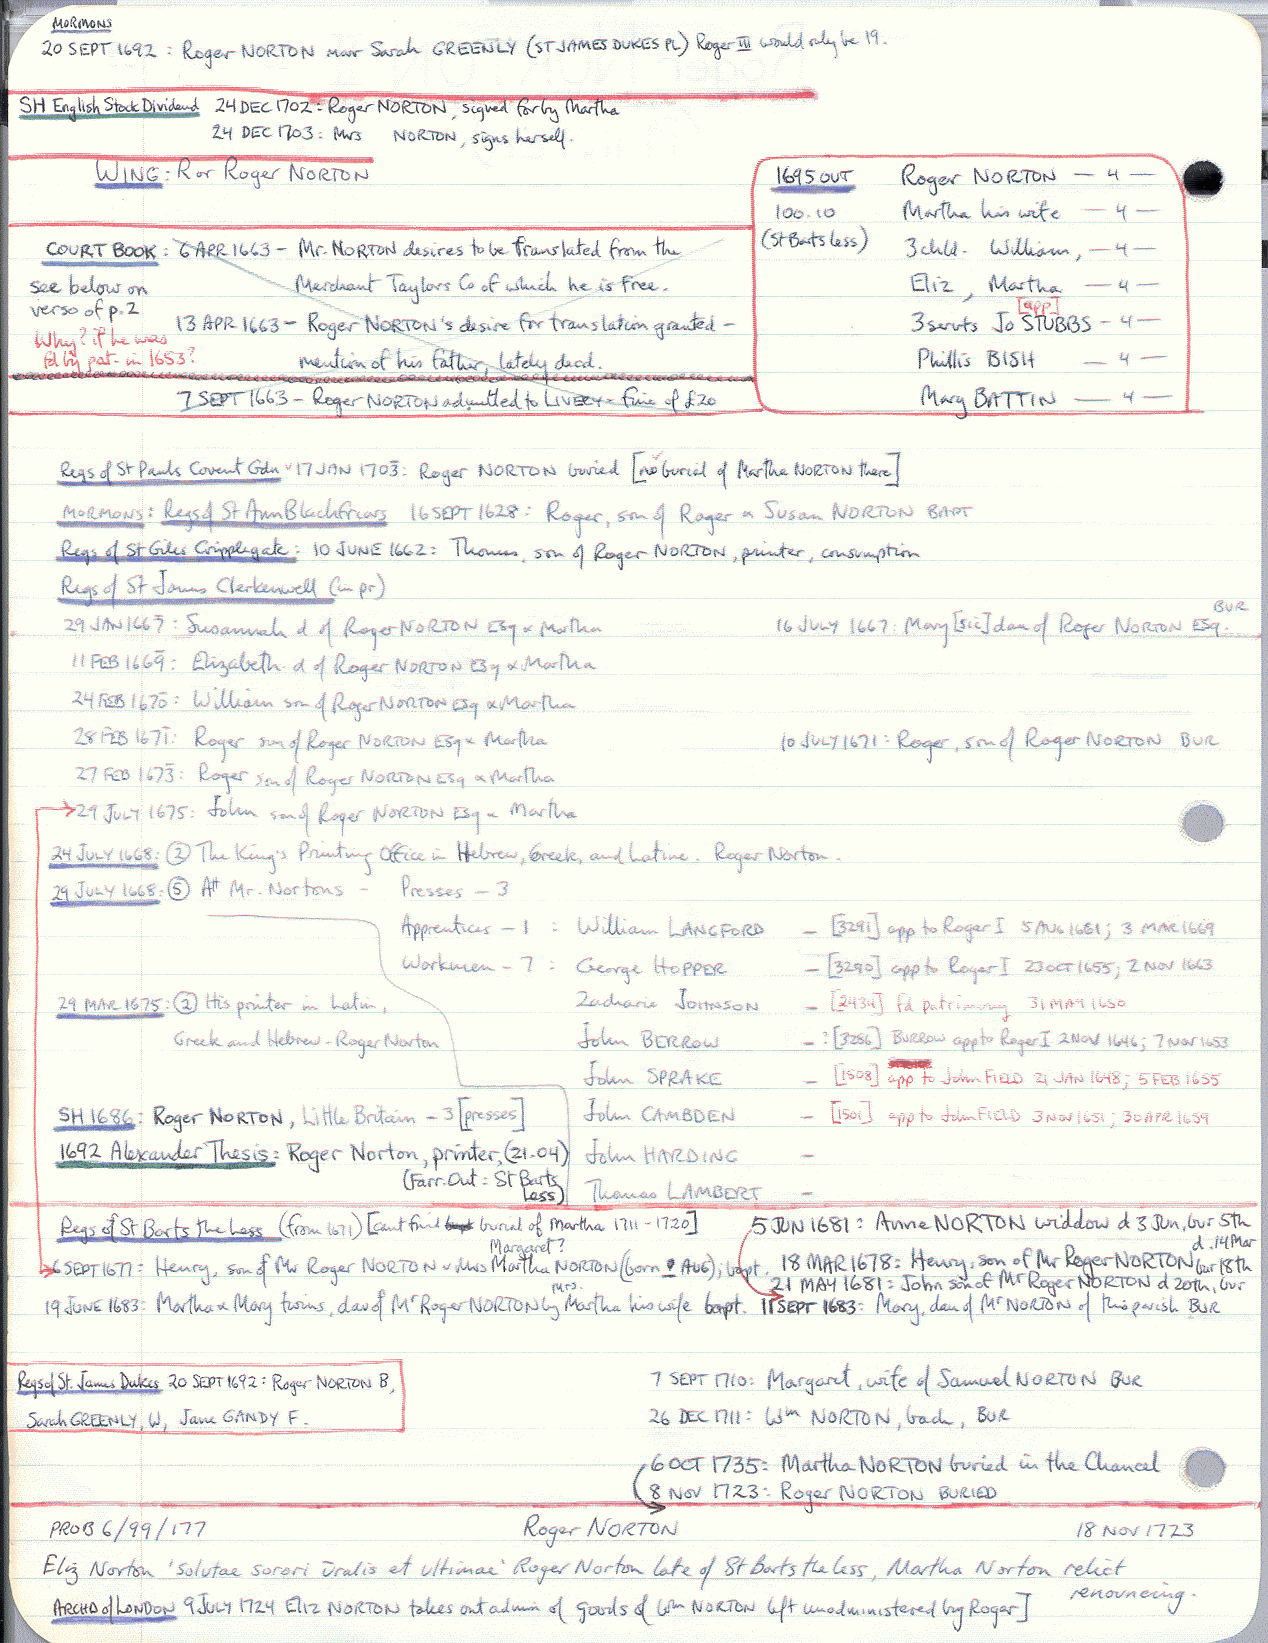 MORMONS
20 SEPT 1692 : Roger NORTON marr Sarah GREENLY (ST JAMES DUKES PL) Roger III would only be 19.
SH English Stock Dividend 24 DEC 1702 : Roger NORTON, signed for by Martha
24 DEC 1703 : Mrs NORTON, signs herself.
WING : R or Roger NORTON
1695 OUT Roger NORTON — 4 —
100.10 Martha his wife — 4 —
(St Barts Less) 3 chld. William, — 4 —
Eliz, Martha — 4 —
[app]
3 servts Jo STUBBS — 4 —
Phillis BISH — 4 —
Mary BATTIN — 4 —
COURT BOOK : 6 APR 1663 – Mr. NORTON desires to be translated from the
see below on Merchant Taylors Co of which he is Free.
verso of p.2
13 APR 1663 – Roger NORTON's desire for translation granted –
Why? if he was
fd by pat. in 1653? mention of his father, lately dead.
7 SEPT 1663 – Roger NORTON admitted to LIVERY – fine of £20
Regs of St Pauls Covent Gdn 17 JAN 1703: Roger NORTON buried [no burial of Martha NORTON there]
MORMONS : Regs of St Ann Blackfriars 16 SEPT 1628 : Roger, son of Roger & Susan NORTON BAPT
Regs of St Giles Cripplegate : 10 JUNE 1662 : Thomas, son of Roger NORTON, printer, consumption
Regs of St James Clerkenwell (in pr)
BUR
29 JAN 1667 : Susannah d of Roger NORTON ESq & Martha 16 JULY 1667 : Mary [sic] dau of Roger NORTON ESq.
11 FEB 1669 : Elizabeth d of Roger NORTON ESq & Martha
24 FEB 1670 : William son of Roger NORTON ESq & Martha
28 FEB 1671 : Roger son of Roger NORTON ESq & Martha 10 JULY 1671 : Roger, son of Roger NORTON BUR
27 FEB 1673 : Roger son of Roger NORTON ESq & Martha
29 JULY 1675 : John son of Roger NORTON ESq & Martha
24 JULY 1668 : (2) The King's Printing Office in Hebrew, Greek, and Latine. Roger Norton.
29 JULY 1668 : (5) At Mr. Nortons – Presses – 3
Apprentices – 1 : William LANGFORD – [3291] app to Roger I 5 AUG 1661; 3 MAR 1669
Workmen – 7 : George HOPPER – [3290] app to Roger I 23 OCT 1655; 2 NOV 1663
29 MAR 1675 : (2) His printer in Latin, Zacharie JOHNSON – [2434] fd patrimony 31 MAY 1650
Greek and Hebrew – Roger Norton John BERROW – : [3286] BURROW app to Roger I 2 NOV 1646; 7 NOV 1653
John SPRAKE – [1508] app to John FIELD 21 JAN 1648; 5 FEB 1655
SH 1686 : Roger NORTON, Little Britain – 3 [presses] John CAMBDEN – [1501] app to John FIELD 3 NOV 1651; 30 APR 1659
1692 Alexander Thesis : Roger Norton, printer, (21.04) John HARDING –
(Farr. Out : St Barts
Less) Thomas LAMBERT –
Regs of St Barts the Less (from 1671) [cant find burial of Martha 1711 – 1720] 5 JUN 1681 : Anne NORTON widdow d 3 Jun, bur 5th
Margaret? d. 14 Mar
6 SEPT 1677 : Henry, son of Mr Roger NORTON & Mrs Martha NORTON (born AUG); bapt. 18 MAR 1678 : Henry, son of Mr Roger NORTON bur 18th
Mrs. 21 MAY 1681 : John son of Mr Roger NORTON d 20th, bur
19 JUNE 1683 : Martha & Mary twins, dau of Mr Roger NORTON by Martha his wife bapt. 11 SEPT 1683 : Mary, dau of Mr NORTON of this parish BUR
Regs of St. James Dukes 20 SEPT 1692 : Roger NORTON B, 7 SEPT 1710 : Margaret, wife of Samuel NORTON BUR
Sarah GREENLY, W, Jane GANDY F. 26 DEC 1711 : Wm NORTON, bach, BUR
6 OCT 1735 : Martha NORTON buried in the Chancel
8 NOV 1723 : Roger NORTON BURIED
PROB 6/99/177 Roger NORTON 18 NOV 1723
Eliz Norton 'Solutae sorori Uralis et ultimae' Roger Norton late of St Barts the less, Martha Norton relict
renouncing.
ARCHD of LONDON 9 JULY 1724 ELIZ NORTON takes out admin of goods of Wm NORTON left unadministered by Roger]